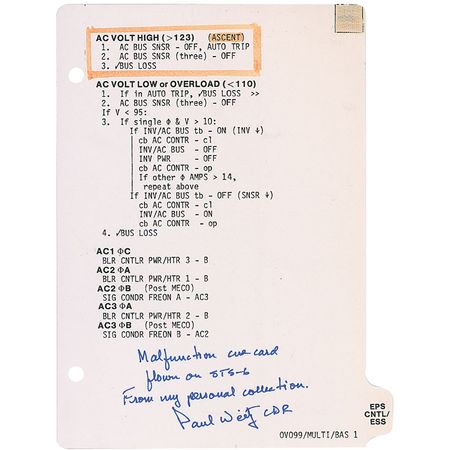 AC VOLT HIGH (>123) (ASCENT)
1. AC BUS SNSR - OFF, AUTO TRIP
2. AC BUS SNSR (three) - OFF
3. √BUS LOSS
AC VOLT LOW or OVERLOAD (<110)
1. If in AUTO TRIP, √BUS LOSS >>
2. AC BUS SNSR (three) - OFF
If V < 95:
3. If single Φ & V > 10:
If INV/AC BUS tb - ON (INV ↓)
cb AC CONTR - cl
INV/AC BUS - OFF
INV PWR - OFF
cb AC CONTR - op
If other Φ AMPS > 14,
repeat above
If INV/AC BUS tb - OFF (SNSR ↓)
cb AC CONTR - cl
INV/AC BUS - ON
cb AC CONTR - op
4. √BUS LOSS
AC1 ΦC
BLR CNTLR PWR/HTR 3 - B
AC2 ΦA
BLR CNTLR PWR/HTR 1 - B
AC2 ΦB (Post MECO)
SIG CONDR FREON A - AC3
AC3 ΦA
BLR CNTLR PWR/HTR 2 - B
AC3 ΦB (Post MECO)
SIG CONDR FREON B - AC2
Malfunction cue card
flown on STS-6
From my personal collection.
Paul Weitz CDR
EPS
CNTL/
ESS
OV099/MULTI/BAS 1